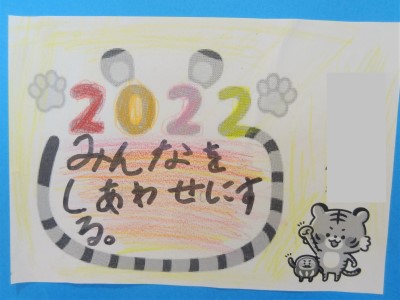 2022
みんなを
しあわせにす
る。